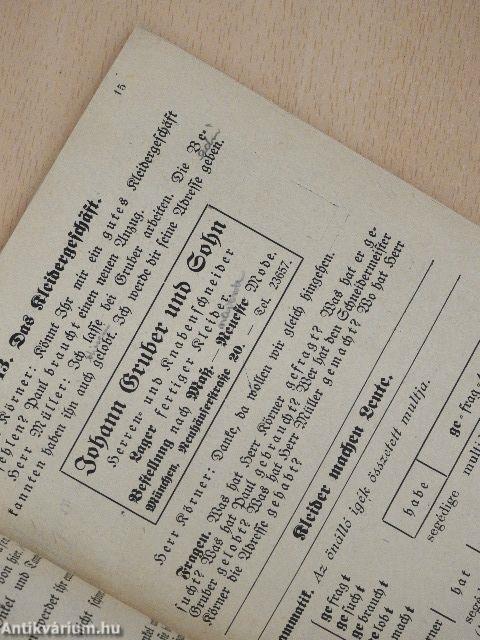 15
13. Das Kleidergeschäft.
Körner: Könnt Ihr mir ein gutes Kleidergeschäft
fehlen? Paul braucht einen neuen Anzug.
Herr Müller: Ich lasse bei Gruber arbeiten. Die Be-
kannten haben ihn auch gelobt. Ich werde dir seine Adresse geben.
Johann Gruber und Sohn
Herren und Knabenschneider
Lager fertiger Kleider.
Bestellung nach Maß. — Neueste Mode.
München, Neuhäuserstraße 20. — Tel. 23657.
Herr Körner: Danke, da wollen wir gleich hingehen.
Fragen. Was hat Herr Körner gefragt? Was hat er ge-
sucht? Was hat Paul gebraucht? Wer hat den Schneidermeister
Gruber gelobt? Was hat Herr Müller gemacht? Wo hat Herr
Körner die Adresse gehabt?
Kleider machen Leute.
Az önálló igék összetett multja.
habe
segédige
ge-frag-t
hat
ge fragt
ge sucht
ge braucht
ge lobt
Antikvárium.hu